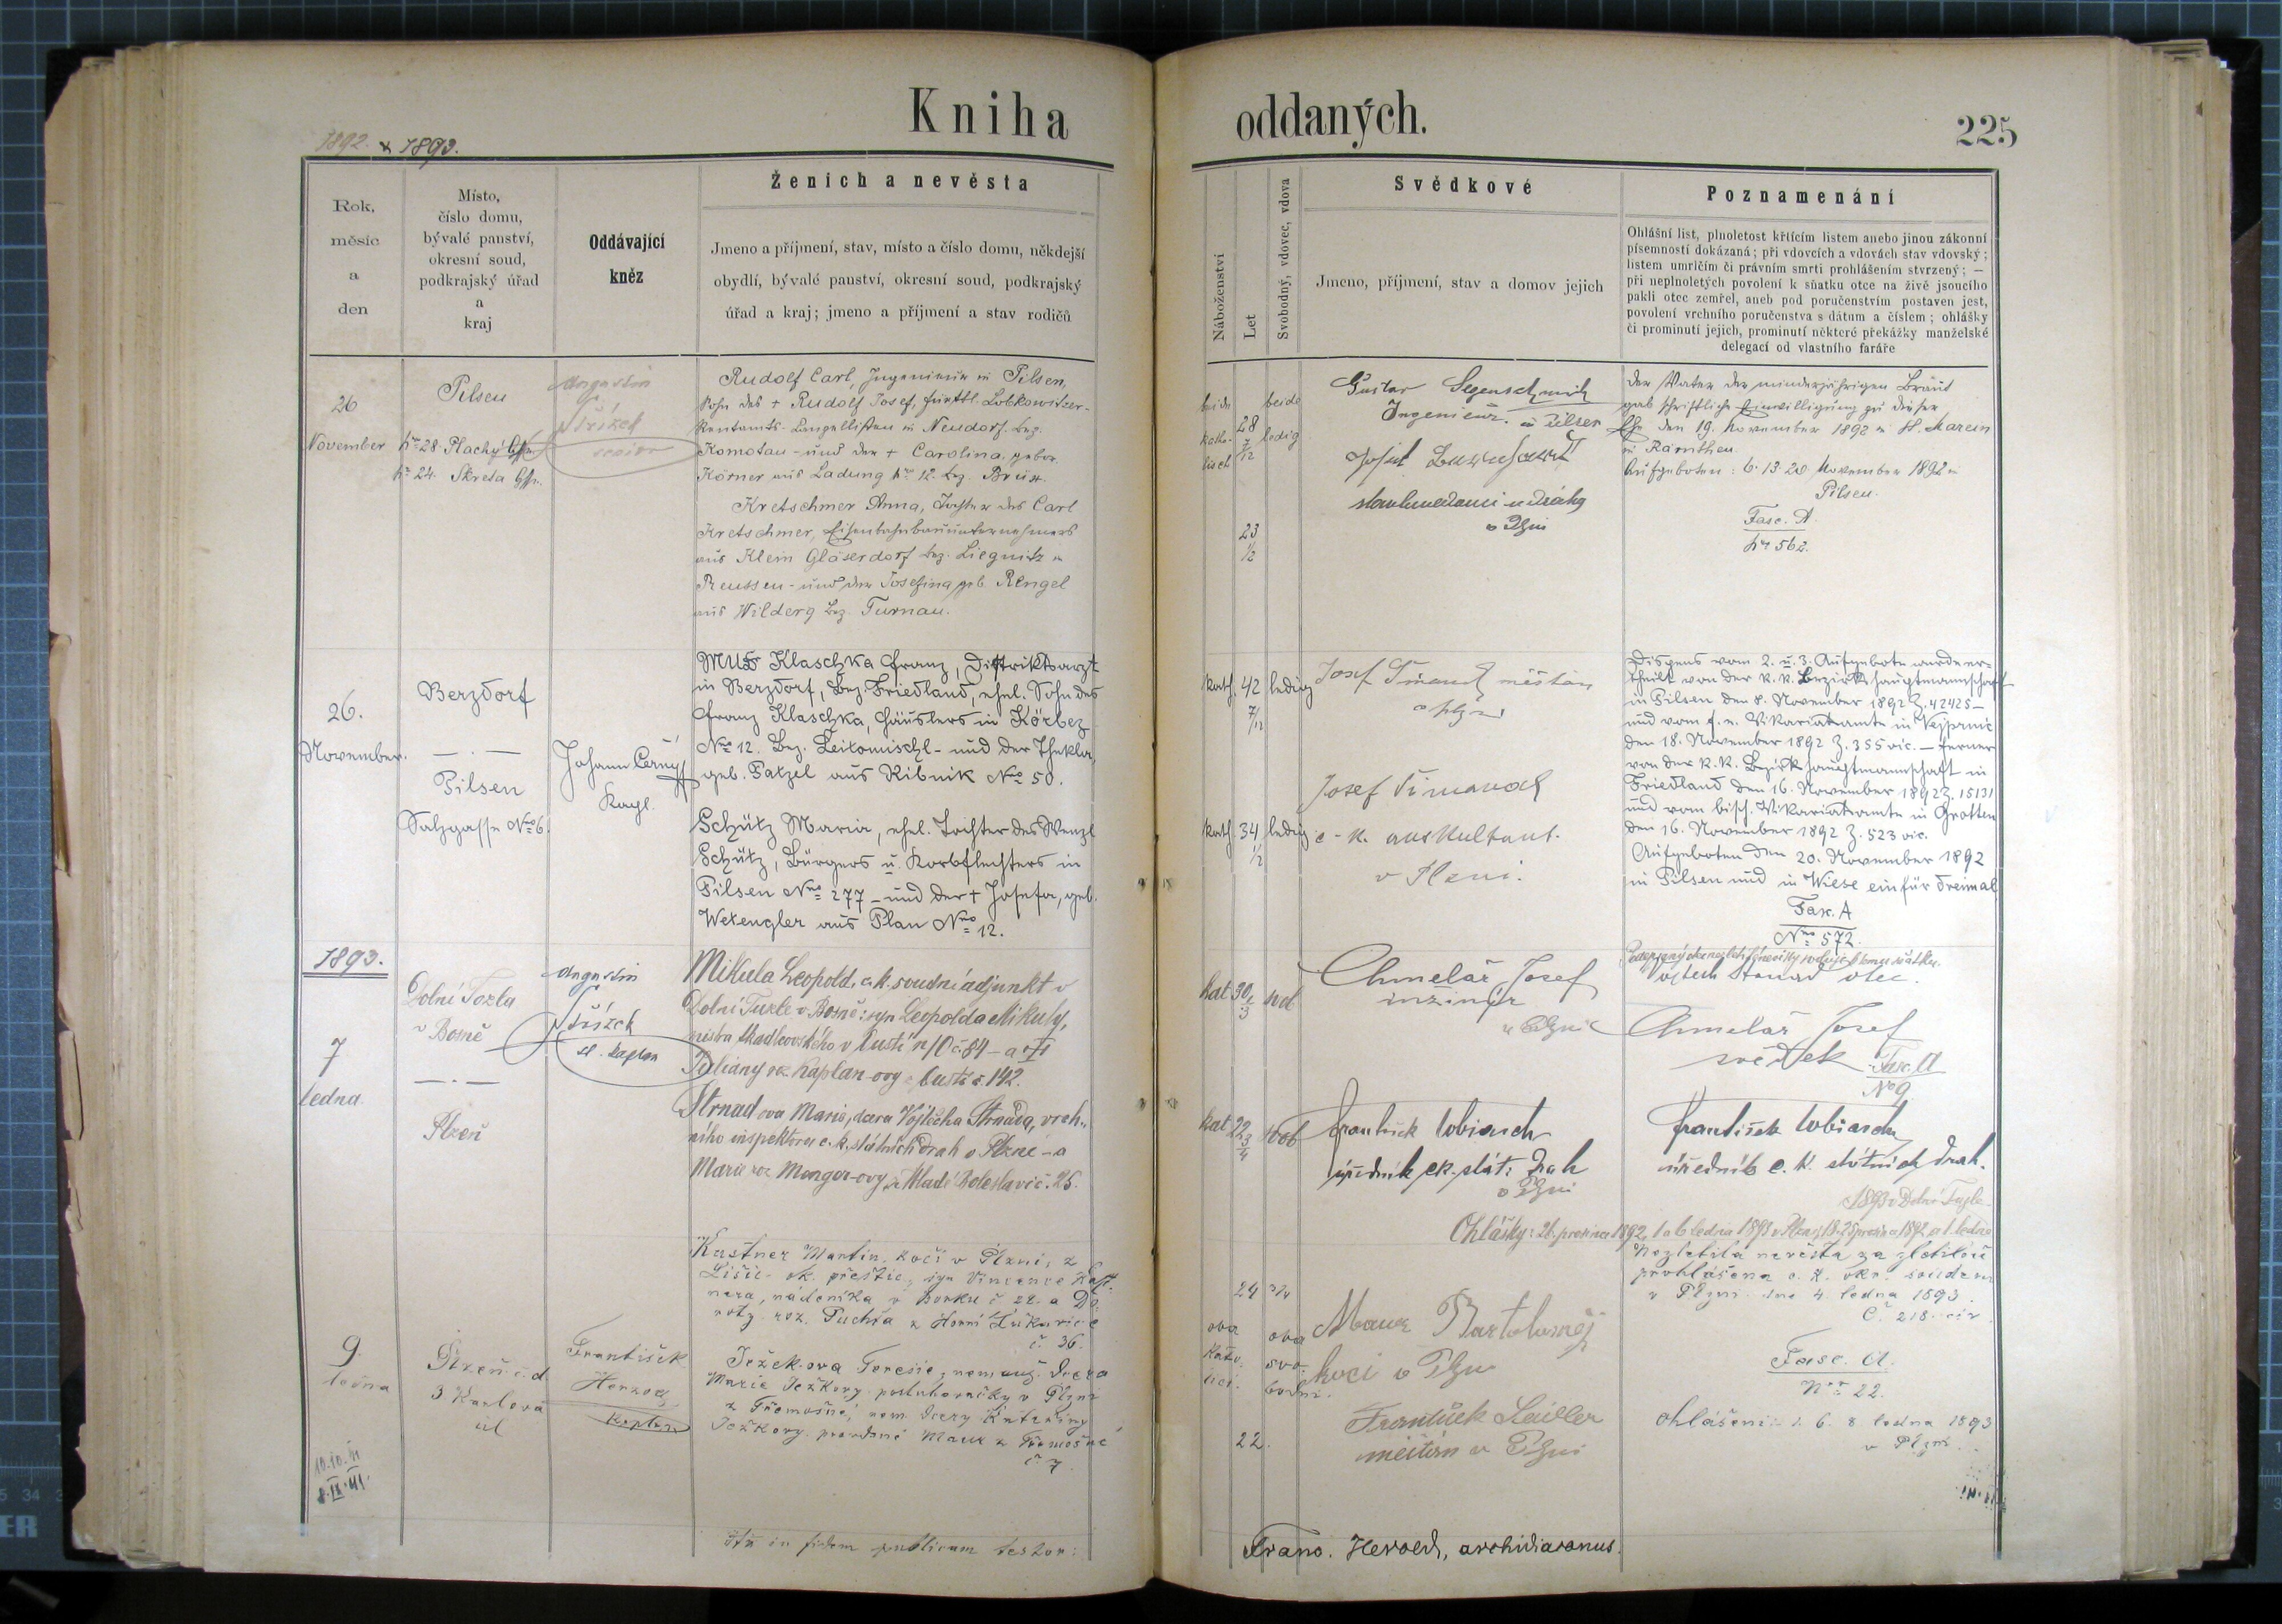 Kniha
oddaných.
225
1892. & 1893.
Rok,
měsíc
a
den
Místo,
číslo domu,
bývalé panství,
okresní soud,
podkrajský úřad
a
kraj
Oddávající
kněz
Ženich a nevěsta
Jmeno a příjmení, stav, místo a číslo domu, někdejší
obydlí, bývalé panství, okresní soud, podkrajský
úřad a kraj; jmeno a příjmení a stav rodičů
Náboženství
Let
Svobodný, vdovec, vdova
Svědkové
Jmeno, příjmení, stav a domov jejich
Poznamenání
Ohlášní list, plnoletost křticím listem anebo jinou zákonní
písemností dokázaná; při vdovcích a vdovách stav vdovský;
listem umrlčím či právním smrti prohlášením stvrzený; —
při neplnoletých povolení k sňatku otce na živě jsoucího
pakli otec zemřel, aneb pod poručenstvím postaven jest,
povolení vrchního poručenstva s dátum a číslem; ohlášky
či prominutí jejich, prominutí některé překážky manželské
delegací od vlastního faráře
26
November
Pilsen
No 28 Plachý Gsse
No 24. Skreta Gsse.
Augustin
Střížek
Rudolf Carl, Ingenieur in Pilsen,
Sohn des + Rudolf Josef, fürstl. Lobkowitzer-
Rentamts-Cancellisten in Neudorf. bez.
Komotau - und der + Carolina, gebor.
Körner aus Ladung No 12. bez. Brüx.
Kretschmer Anna, Tochter des Carl
Kretschmer, Eisenbahnbauunternehmers
aus Klein Gläserdorf bez. Liegnitz in
Preussen - und der Josefina geb. Rengel
aus Wilderg bez. Turnau.
beide
katho-
lisch
28
7/12
23
1/2
beide
ledig
Gustav Segenschmid
Ingenieur in Pilsen
Josef
v Plzni
Der Vater der minderjährigen Braut
gab schriftliche Einwilligung zu dieser
Ehe den 19. November 1892 in St. Marein
in Kärnthen.
Aufgeboten: 6. 13. 20 November 1892 in
Pilsen.
Fasc. A.
No 562.
26.
November.
Berzdorf
— . —
Pilsen
Salzgasse No 6.
Johann Černý
Kapl.
MUDr Klaschka Franz, Distriktsarzt
in Berzdorf, Bez. Friedland, ehel. Sohn des
Franz Klaschka, Häuslers in Körber
No 12. Bez. Leitomischl - und der Thekla,
geb. Patzel aus Ribnik No 50.
Schütz Maria, ehel. Tochter des Wenzl
Schütz, Bürgers u. Korbflechters in
Pilsen No 277 - und der + Josefa, geb.
Wetengler aus Plan No 12.
kath.
42
7/12
ledig
kath.
34
1/2
ledig
Josef Šimandl měšťan
v Plzni
Josef Šimandl
c. k. auskultant.
v Plzni.
Dispens vom 2. u. 3. Aufgebote wurde er-
theilt von der k.k. Bezirkshauptmannschaft
in Pilsen den 8. November 1892 Z. 42425 -
und vom f. e. Vikariatamte in Vejprnic
den 18. November 1892 Z. 355 vic. - ferner
von der k.k. Bezirkshauptmannschaft in
Friedland den 16. November 1892 Z. 15131
und vom bisch. Vikariatamte in Grottau
den 16. November 1892 Z. 523 vic.
Aufgeboten den 20. November 1892
in Pilsen und in Wiese ein für dreimal
Fax. A
No 572.
1893.
7
ledna.
Dolní Tozla
v Bosně
— . —
Plzeň
Augustin
Střížek
st. kaplan
Mikula Leopold, c. k. soudní adjunkt v
Dolní Tuzle v Bosně: syn Leopolda Mikuly,
mistra tkadlcovského v Ústí n/O č. 84 - a +
Juliany roz. Kaplan-ovy z Ústí č. 142.
Strnad-ova Marie, dcera Vojtěcha Strnada, vrch-
ního inspektora c. k. státních drah v Plzni - a
Marie roz. Mengor-ovy z Mladé Boleslavi č. 25.
kat
30
1/3
kat
22
3/4
svob
Chmelář Josef
inžinýr
v Plzni
František Wobiasch
úředník ck. stát. drah
v Plzni
Vojtěch Strnad otec.
Chmelář Josef
svědek
Fax. A
No 9
František Wobiasch
úředník c. k. státních drah.
1893 v Dolní Tuzle
Ohlášky: 26. prosince 1892, 1 a 6 ledna 1893 v Plzni, 18. 25 prosince 1892 a 1 ledna
9.
ledna
Plzeň č. d.
3 Karlova
ul
František
Herzog
Kaplan
Kastner Martin, kočí v Plzni, z
Lišic ok. přeštic, syn Vincence Kast-
nera, nádeníka v Borku č 22. a Do-
roty roz. Puchta z Horní Lukavice
č. 36.
Ježek-ova Teresie, nemanž. dcera
Marie Ježkovy posluhovačky v Plzni
z Třemošné, nem. dcery Kateřiny
Ježkovy provdané Maur z Třemošné
č. 7.
24
3/4
oba
kato-
lici.
oba
svo-
bodni.
22.
Mauer Bartoloměj
kočí v Plzni
František Seidler
měšťan v Plzni
Nezletilá nevěsta za zletilou
prohlášena c. k. okr. soudem
v Plzni dne 4. ledna 1893.
Č. 218. civ.
Fasc. A.
No 22.
Ohlášeni: 1. 6. 8. ledna 1893
v Plzni.
Ita in fidem publicam testor:
Franc. Herold, archidiaconus.